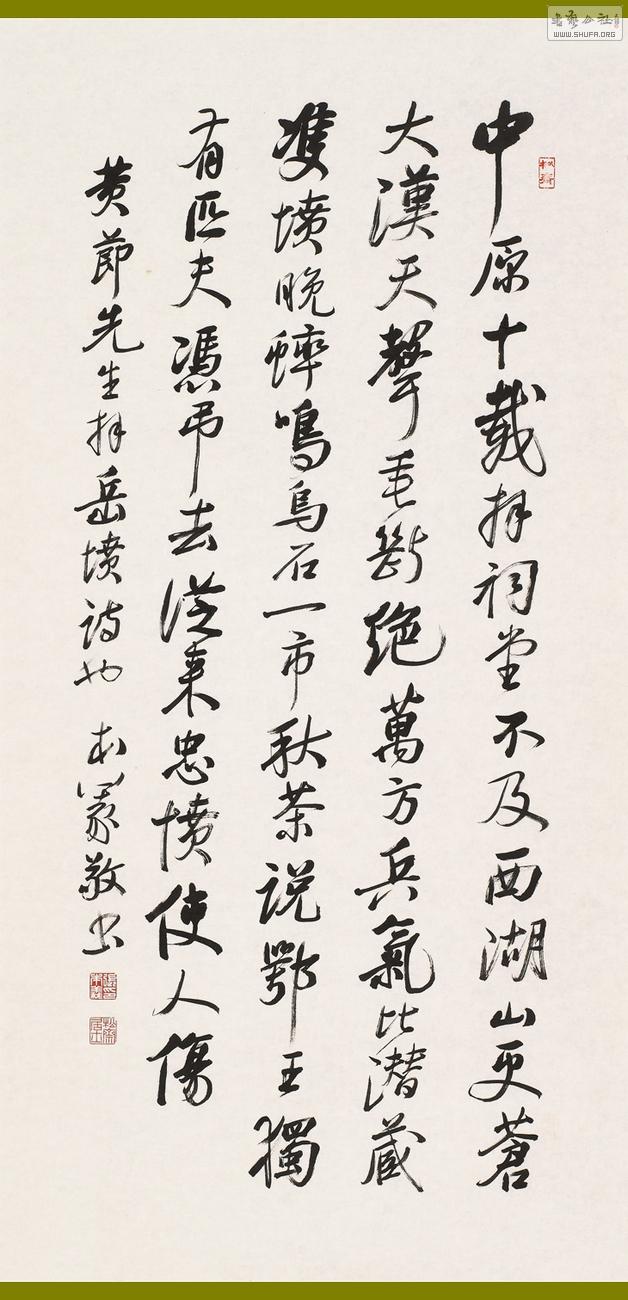 書藝公社
WWW.SHUFA.ORG
中原十載拜祠堂不及西湖山更蒼
大漢天聲垂斷絕萬方兵氣此潛藏
雙墳晚蟀鳴烏石一市秋茶說鄂王獨
有匹夫憑吊去從來忠憤使人傷
黄節先生拜岳墳詩也 敬书